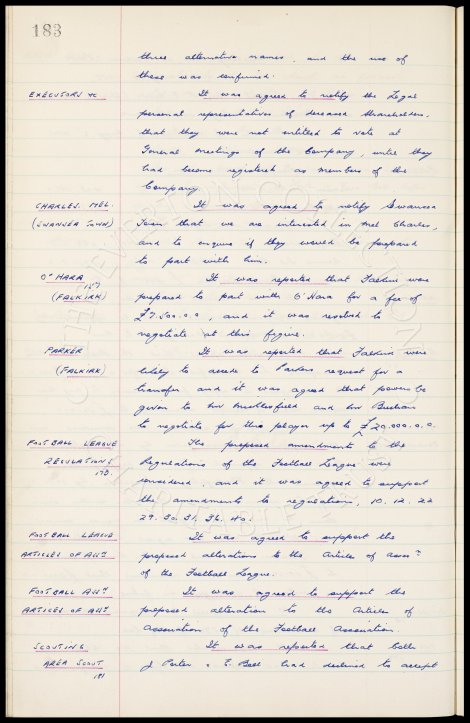 183
three alternative names, and the use of
these was confirmed.
EXECUTORS &c
It was agreed to notify the Legal
personal representatives of deceased shareholders,
that they were not entitled to vote at
General meetings of the Company, until they
had become registered as members of the
Company
CHARLES. MEL.
(SWANSEA TOWN)
It was agreed to notify Swansea
Town that we are interested in Mel Charles,
and to enquire if they would be prepared
to part with him.
O'HARA
157
(FALKIRK)
It was reported that Falkirk were
prepared to part with O'Hara for a fee of
£7.500.0.0, and it was resolved to
negotiate at this figure.
PARKER
(FALKIRK)
It was reported that Falkirk were
likely to accede to Parkers request for a
transfer and it was agreed that powers be
given to Mr and Mr Buchan
to negotiate for this player up to £20.000.0.0.
FOOTBALL LEAGUE
REGULATIONS
170.
The proposed amendments to the
Regulations of the Football League were
considered, and it was agreed to support
the amendments to regulations, 10. 12. 22
29. 30. 31. 36. 40.
FOOTBALL LEAGUE
ARTICLES OF ASSN
It was agreed to support the
proposed alterations to the Articles of Assocn
of the Football League.
FOOTBALL ASSN
ARTICLES OF ASSN
It was agreed to support the
proposed alteration to the Articles of
Association of the Football Association.
SCOUTING
AREA SCOUT
181
It was reported that both
J. Porter & E. Bell had declined to accept